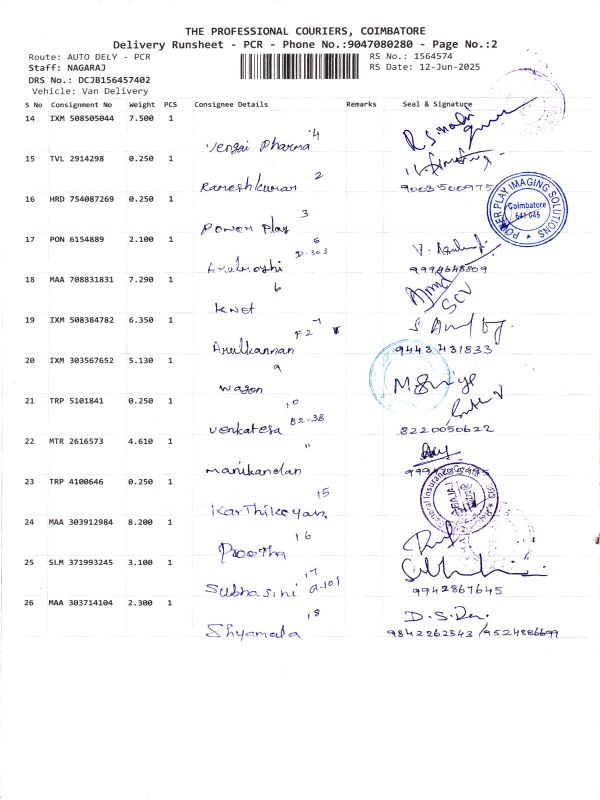 THE PROFESSIONAL COURIERS, COIMBATORE
Delivery Runsheet - PCR - Phone No.:9047080280 - Page No.:2
Route: AUTO DELY - PCR
RS No.: 1564574
Staff: NAGARAJ
RS Date: 12-Jun-2025
DRS No.: DCJB156457402
Vehicle: Van Delivery
S No Consignment No Weight PCS Consignee Details Remarks Seal & Signature
14 IXM 508505044 7.500 1
Vengai Pharma 4
15 TVL 2914298 0.250 1
Rameshkumar 2
9003500975
16 HRD 754087269 0.250 1
Power Play 3
POWER PLAY IMAGING SOLUTIONS
Coimbatore
641 045
17 PON 6154889 2.100 1
D-303
9994648809
18 MAA 708831831 7.290 1
6
Knet
19 IXM 508384782 6.350 1
Arulkannan F2 7
9443431833
20 IXM 303567652 5.130 1
9
Wagon
21 TRP 5101841 0.250 1
10
Venkatesa B2-38
8220050622
22 MTR 2616573 4.610 1
11
Manikandan
23 TRP 4100646 0.250 1
15
Karthikeyan
General Insurance
24 MAA 303912984 8.200 1
16
Preetha
25 SLM 371993245 3.100 1
17
Subhasini G-101
9942867645
26 MAA 303714104 2.300 1
18
Shyamala
D.S.Dev.
9842262343 /9524886699